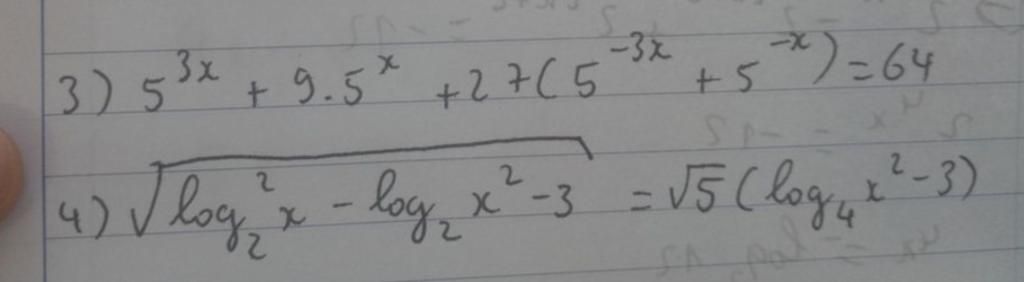 3) 5^{3x} + 9.5^x + 27(5^{-3x} + 5^{-x}) = 64
4) √(log_2^2 x - log_2 x^2 - 3) = √5 (log_4 x^2 - 3)